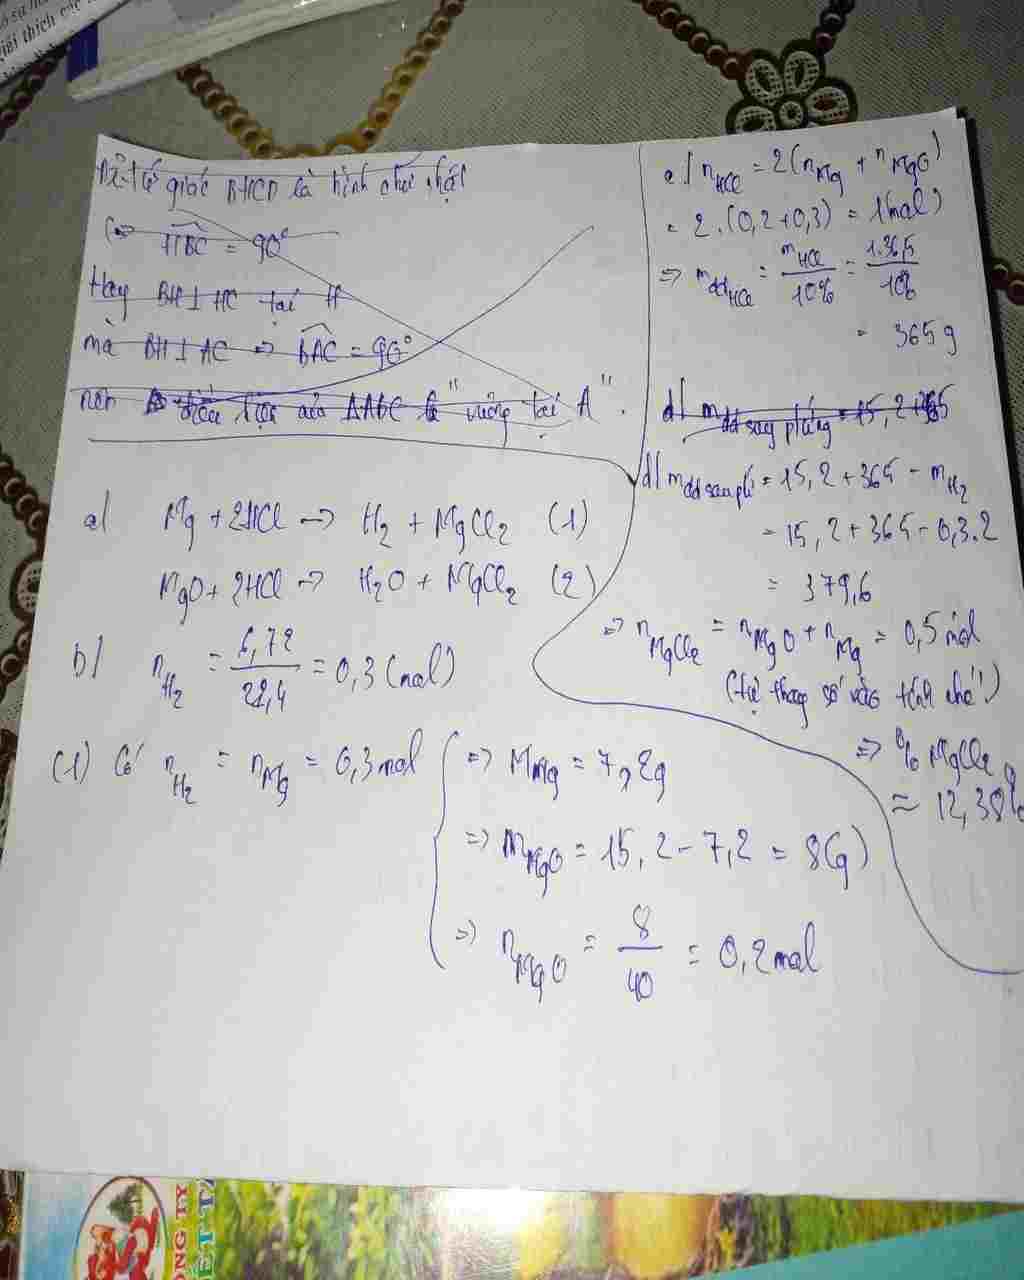 giải thích các
tứ giác BHCD là hình chữ nhật
(=> HBC = 90°
Hay BH⊥HC tại H
mà BH⊥AC => BAC = 90°
nên của ΔABC là "vuông tại A".
a/ Mg + 2HCl -> H2 + MgCl2 (1)
MgO + 2HCl -> H2O + MgCl2 (2)
b/ nH2 = 6,72/22,4 = 0,3 (mol)
(1) Có nH2 = nMg = 0,3 mol
=> MMg = 7,2g
=> mMgO = 15,2 - 7,2 = 8(g)
=> nMgO = 8/40 = 0,2 mol
c/ nHCl = 2(nMg + nMgO)
= 2.(0,2+0,3) = 1(mol)
=> mddHCl = mHCl/10% = 1.36,5/10%
= 365g
d/ mdd sau phứng = 15,2+365
d/ mdd sau pứ = 15,2 + 365 - mH2
= 15,2 + 365 - 0,3.2
= 379,6
=> nMgCl2 = nMgO + nMg = 0,5 mol
(tự thay số vào tính nhé)
=> % MgCl2
≈ 12,38%
ÔNG TY